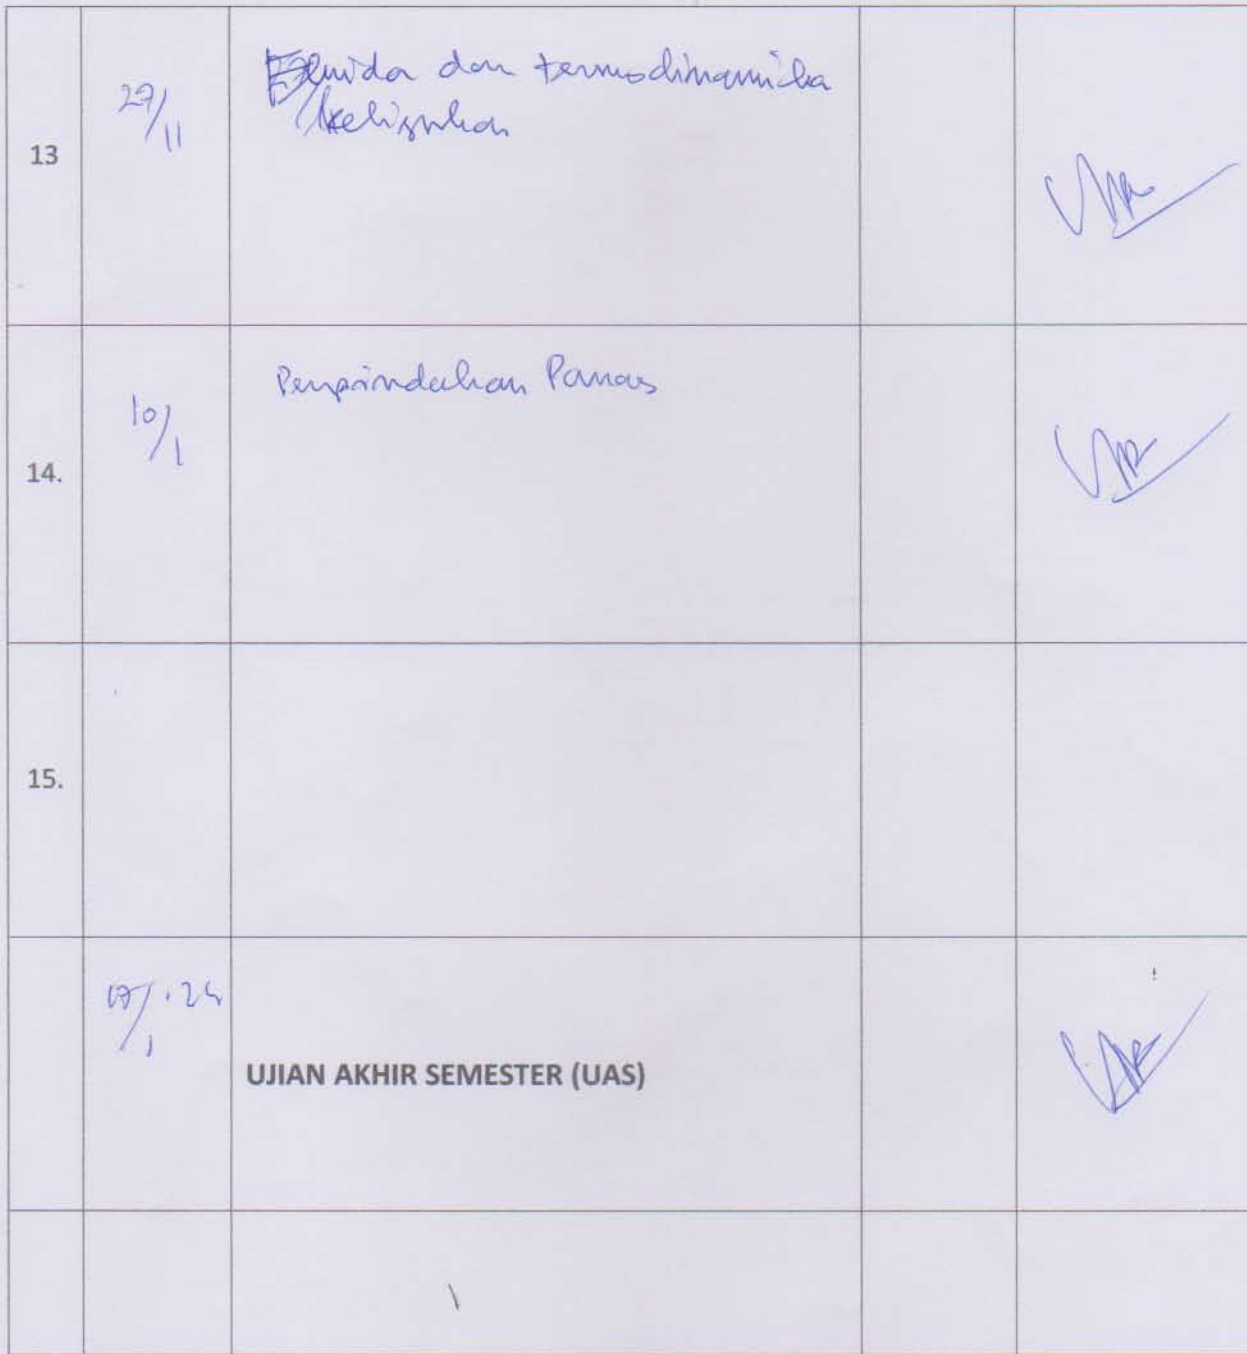 13
27/11
Fluida dan termodinamika
14.
10/1
Perpindahan Panas
15.
17/1 '24
UJIAN AKHIR SEMESTER (UAS)